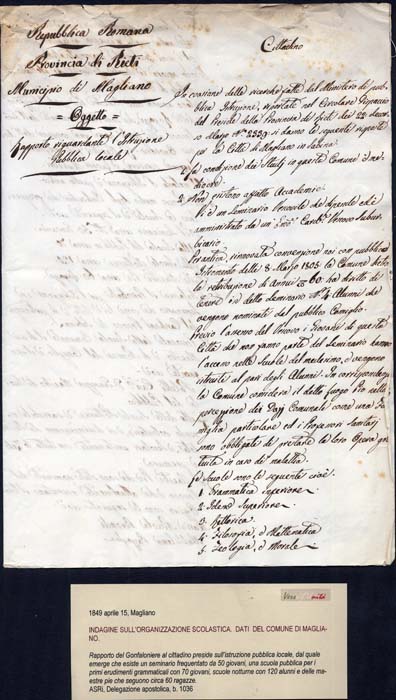 Repubblica Romana
Provincia di Rieti
Municipio di Magliano
= Oggetto =
Rapporto riguardante l'Istruzione
Pubblica locale
Cittadino
In evasione delle ricerche fatte dal Ministero di pub-
blica Istruzione, riportate nel Circolare Dispaccio
del Preside della Provincia di Rieti dei 22 decor-
so Marzo Nº 2229 si danno le seguenti risposte
per la Città di Magliano in Sabina
1. La condizione dei Studj in questa Comune è me-
diocre
2. Non esistono affatto Accademie
Vi è un Seminario Vescovile che dipende ed è
amministrato da un Emo Cardl. Vescovo Subur-
bicario
Per antica, rinnovata convenzione poi con pubblico
Istromento delle 8 Marzo 1808 la Comune dietro
la retribuzione di annui 60 ha diritto di
tenere in detto Seminario Nº 4 Alunni che
vengono nominati dal pubblico Consiglio
Previo l'assenso del Vescovo i Giovani di questa
Città che non fanno parte del Seminario hanno
l'accesso nelle Scuole del medesimo, e vengono
istruiti al pari degli Alunni. In corrispondenza
la Comune considera il detto Luogo Pio nella
percezione dei Dazj Comunali come una Fa-
miglia particolare ed i Professori Sanitarj
sono obbligati di prestare la loro Opera gra-
tuita in caso di malattia.
Le Scuole sono le seguenti cioè
1. Grammatica Inferiore
2. Idem Superiore
3. Rettorica
4. Filosofia, e Mattematica
5. Teologia, e Morale
1849 aprile 15, Magliano
INDAGINE SULL'ORGANIZZAZIONE SCOLASTICA. DATI DEL COMUNE DI MAGLIA-
NO.
Rapporto del Gonfaloniere al cittadino preside sull'istruzione pubblica locale, dal quale
emerge che esiste un seminario frequentato da 50 giovani, una scuola pubblica per i
primi erudimenti grammaticali con 70 giovani, scuole notturne con 120 alunni e delle ma-
estre pie che seguono circa 60 ragazze.
ASRi, Delegazione apostolica, b. 1036